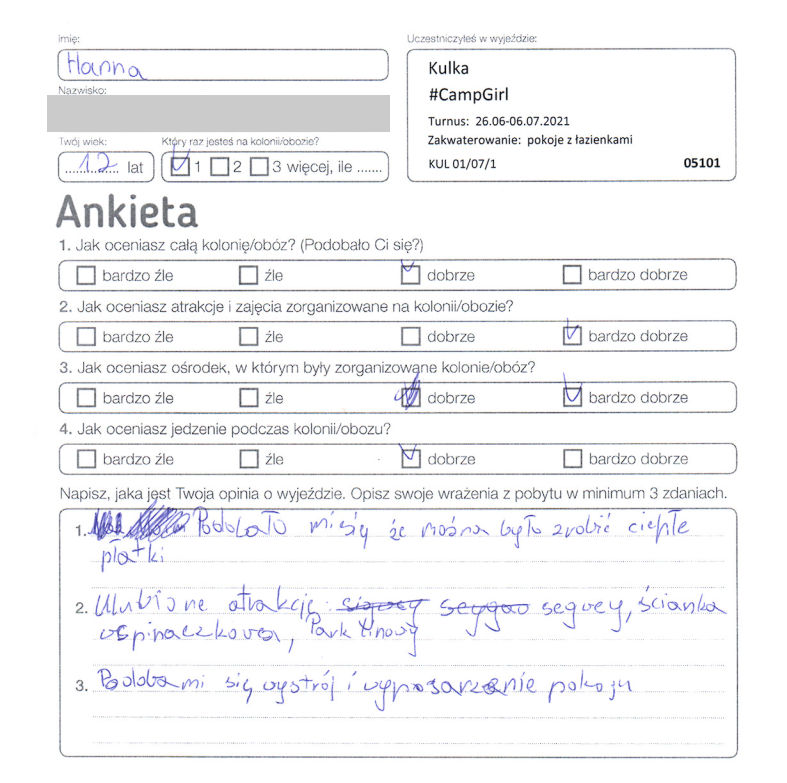 Imię:
Hanna
Nazwisko:
Twój wiek:
12 lat
Który raz jesteś na kolonii/obozie?
1 2 3 więcej, ile .......
Uczestniczyłeś w wyjeździe:
Kulka
#CampGirl
Turnus: 26.06-06.07.2021
Zakwaterowanie: pokoje z łazienkami
KUL 01/07/1 05101
Ankieta
1. Jak oceniasz całą kolonię/obóz? (Podobało Ci się?)
bardzo źle źle dobrze bardzo dobrze
2. Jak oceniasz atrakcje i zajęcia zorganizowane na kolonii/obozie?
bardzo źle źle dobrze bardzo dobrze
3. Jak oceniasz ośrodek, w którym były zorganizowane kolonie/obóz?
bardzo źle źle dobrze bardzo dobrze
4. Jak oceniasz jedzenie podczas kolonii/obozu?
bardzo źle źle dobrze bardzo dobrze
Napisz, jaka jest Twoja opinia o wyjeździe. Opisz swoje wrażenia z pobytu w minimum 3 zdaniach.
1. Podobało mi się że można było zrobić ciepłe
płatki
2. Ulubione atrakcję segwey, ścianka
wspinaczkowa, Park Linowy
3. Podoba mi się wystrój i wyposarzenie pokoju